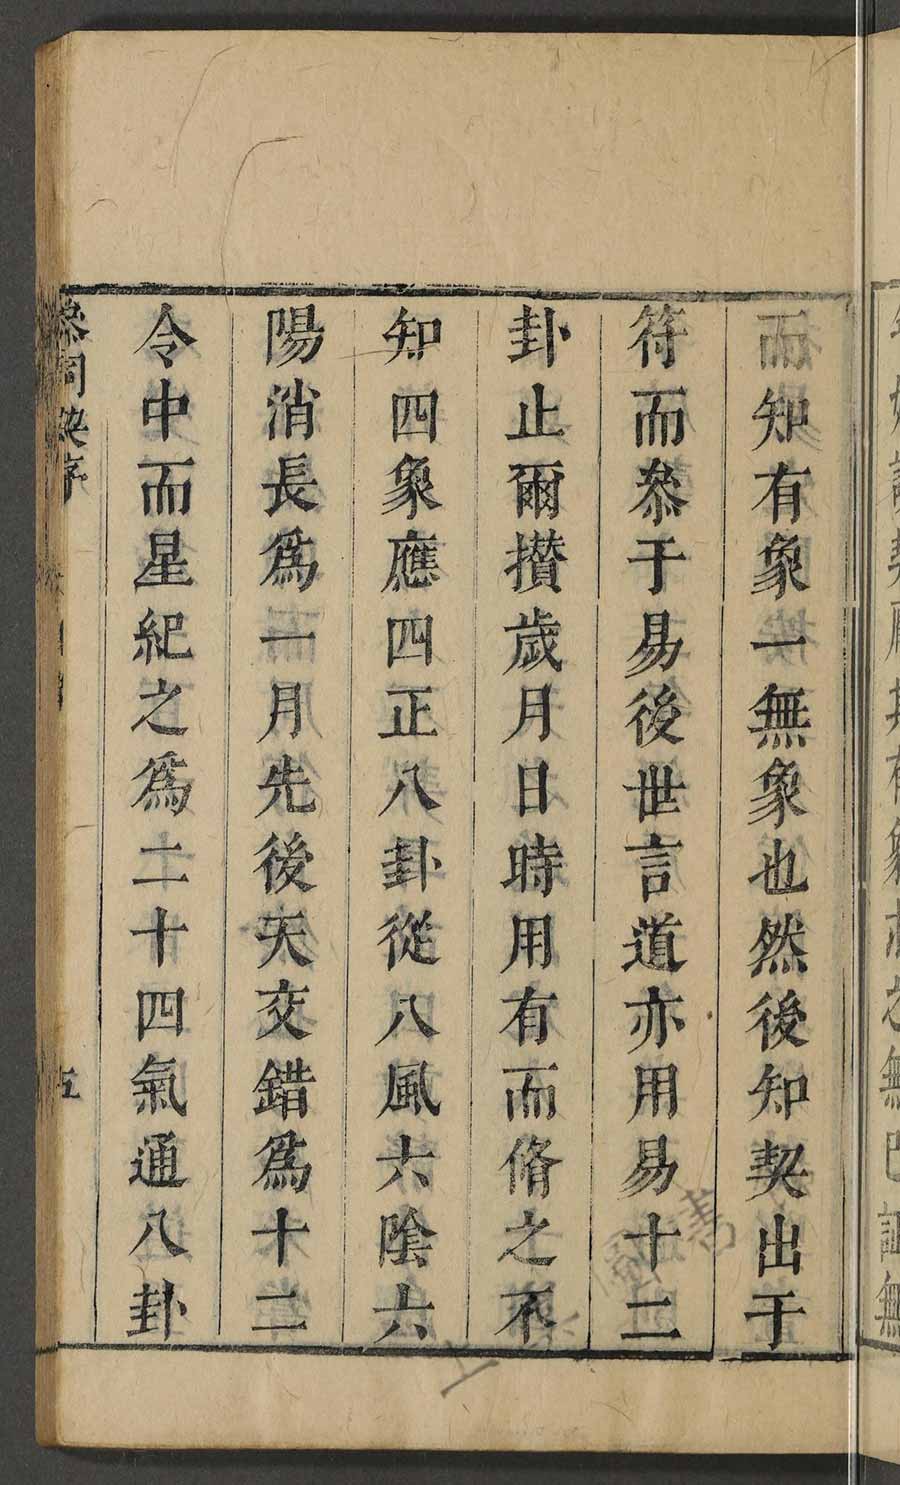 而知有象一無象也然後知契出于
符而叅于易後世言道亦用易十二
卦止爾攢歲月日時用有而脩之不
知四象應四正八卦從八風六陰六
陽消長爲一月先後天交錯爲十二
令中而星紀之爲二十四氣通八卦
叅同契序
五